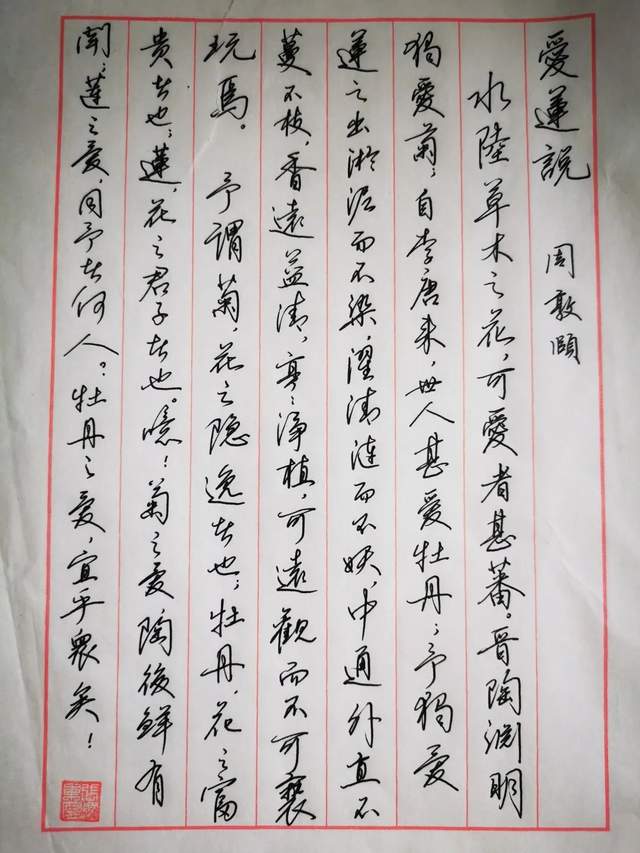 愛蓮說　周敦頤
水陸草木之花，可愛者甚蕃。晉陶淵明
獨愛菊；自李唐来，世人甚愛牡丹；予獨愛
蓮之出淤泥而不染，濯清漣而不妖，中通外直，不
蔓不枝，香遠益清，亭々淨植，可遠觀而不可褻
玩焉。　予謂菊，花之隐逸者也；牡丹，花之富
貴者也；蓮，花之君子者也。噫！菊之爱，陶後鮮有
聞；蓮之爱，同予者何人？牡丹之爱，宜乎衆矣！